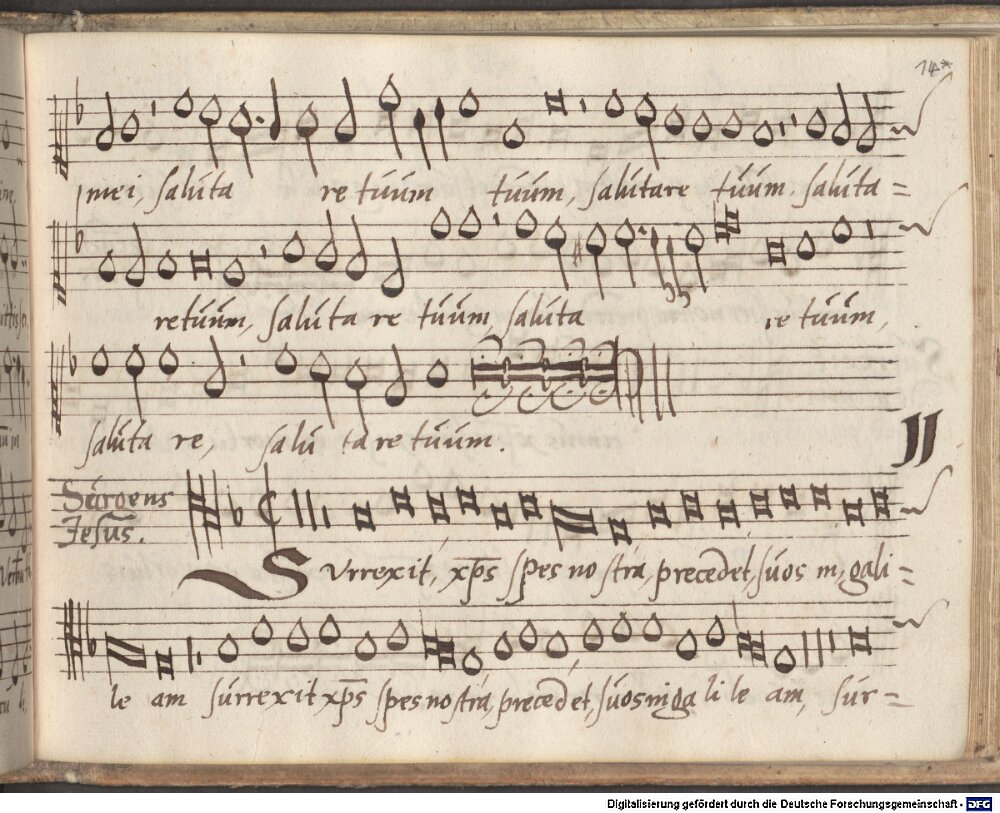 14*
mei, saluta re tuum tuum, salutare tuum. saluta =
retuum, saluta re tuum, saluta re tuum,
saluta re, salu ta re tuum.
JJ
Surgens
Jesus.
Surrexit, xp̄s spes no stra, precedet, suos in, gali =
le am surrexit xp̄s spes nostra, precedet, suos in ga li le am, sur =
Digitalisierung gefördert durch die Deutsche Forschungsgemeinschaft - DFG